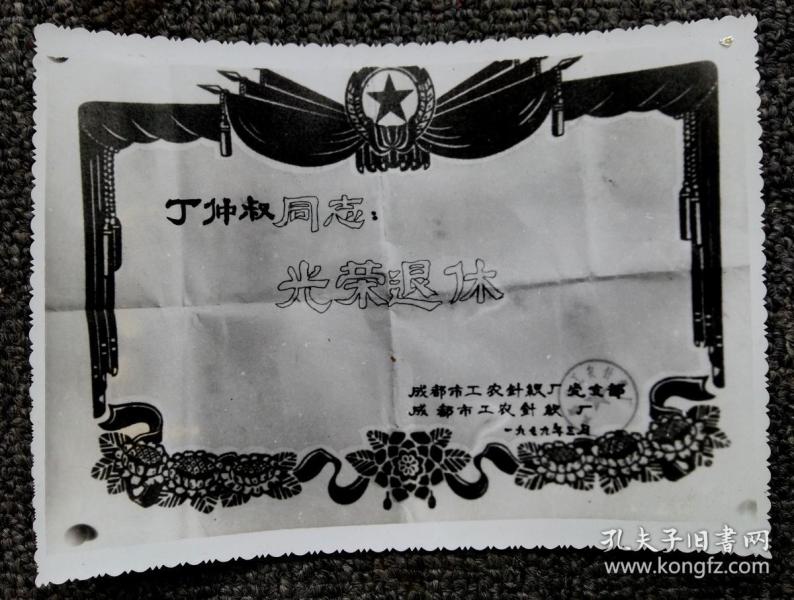 丁仲叔同志：
光荣退休
成都市工农针织厂党支部
成都市工农针织厂
一九七九年三月
孔夫子旧書网
www.kongfz.com